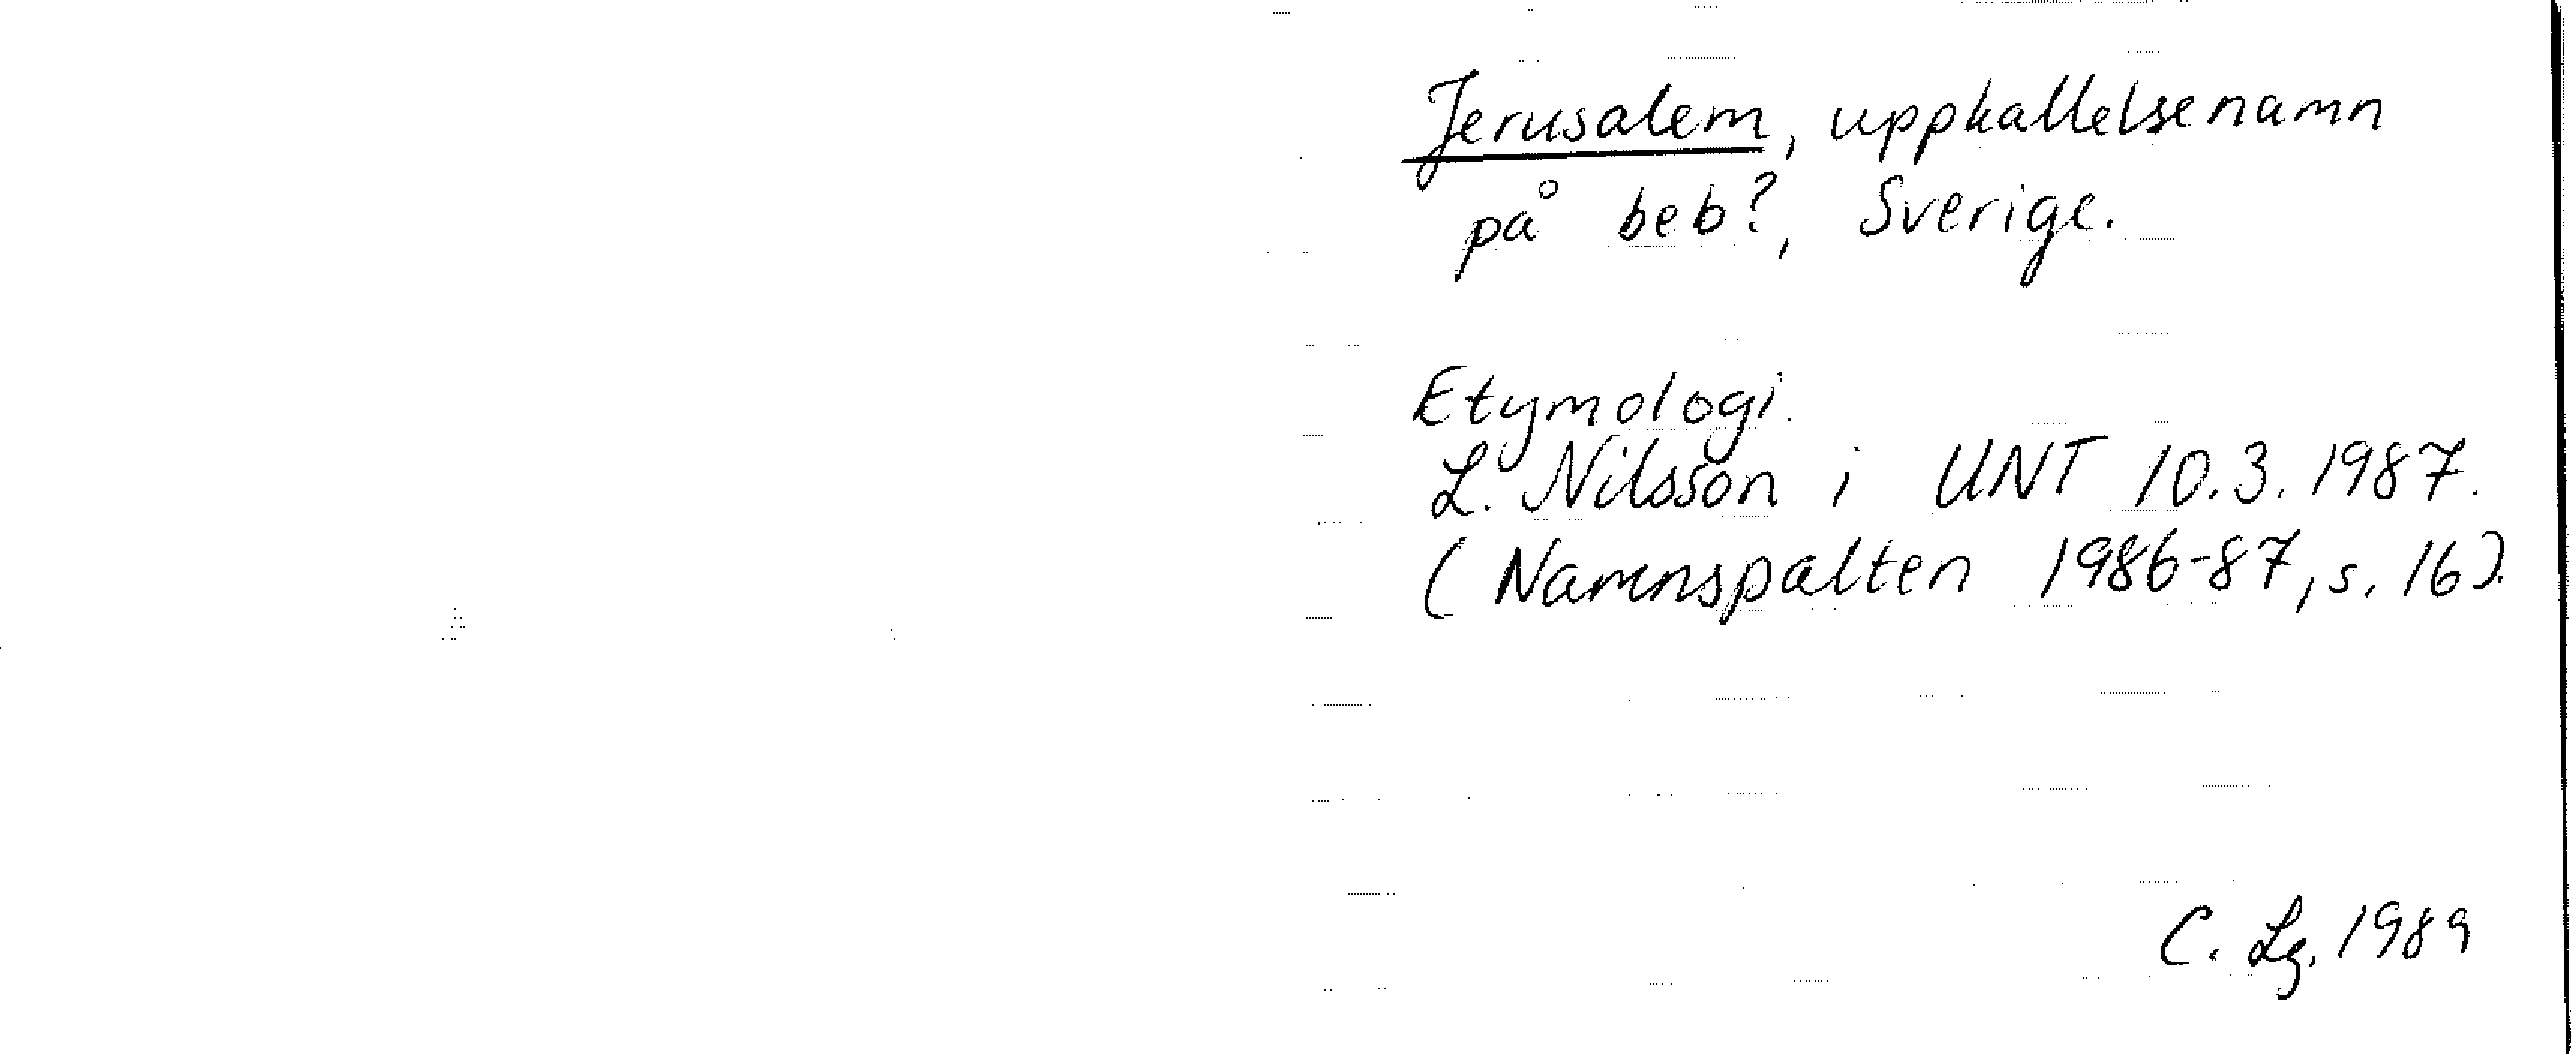 Jerusalem, uppkallelsenamn
på beb?, Sverige.
Etymologi.
L. Nilsson i UNT 10.3.1987.
(Namnspalten 1986-87, s. 16).
C. Lg, 1989